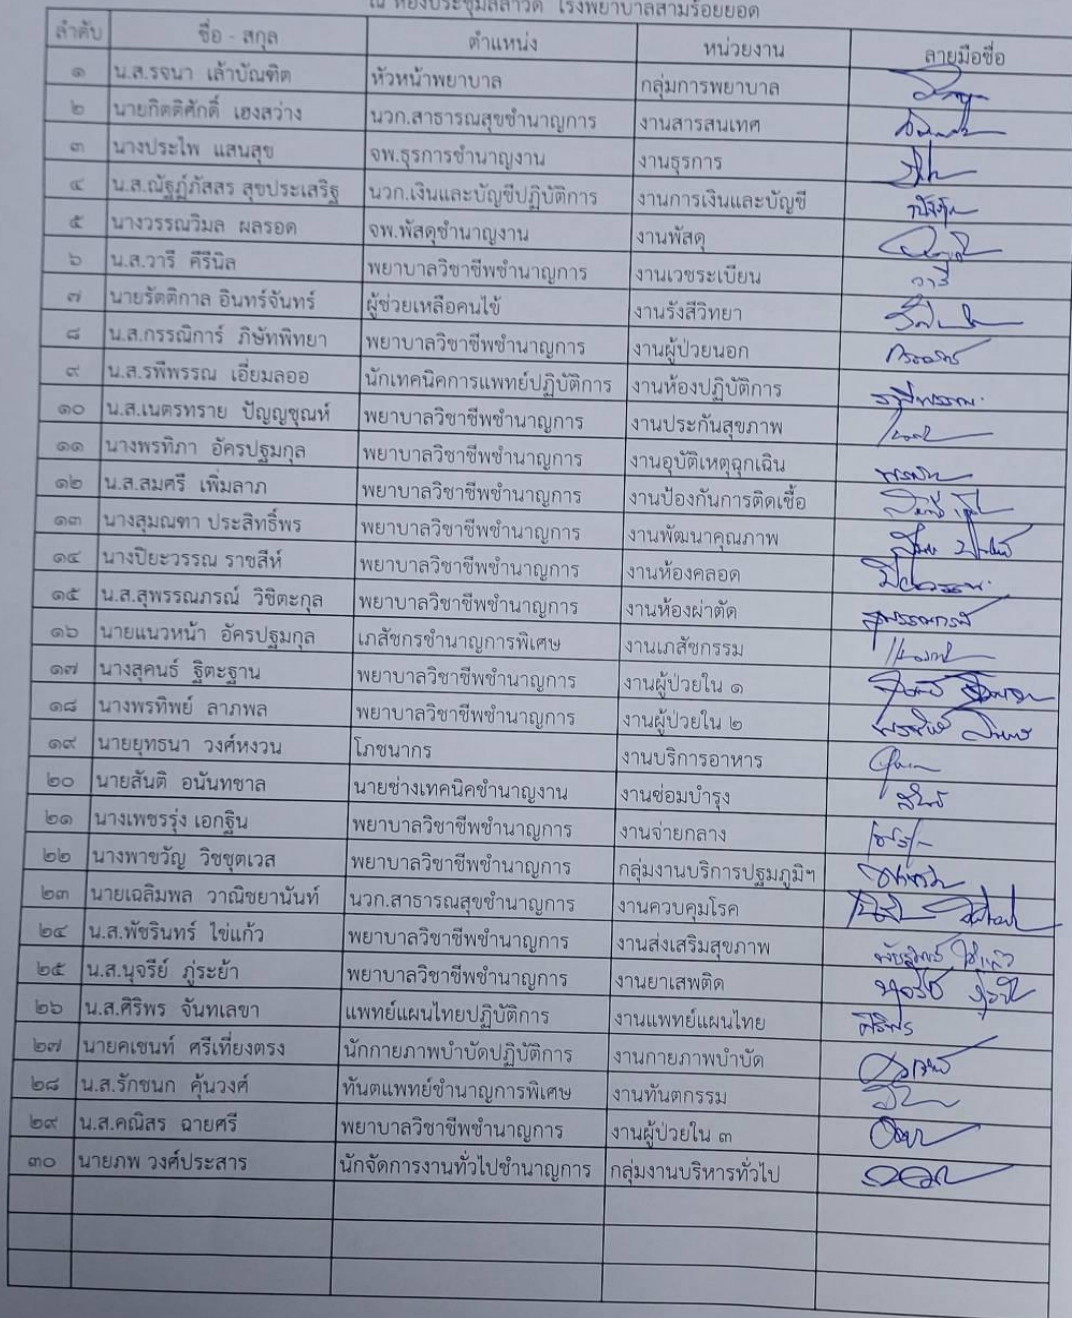 ณ ห้องประชุมสิลาวดี โรงพยาบาลสามร้อยยอด
ลำดับ ชื่อ - สกุล ตำแหน่ง หน่วยงาน ลายมือชื่อ
๑ น.ส.รจนา เล้าบัณฑิต หัวหน้าพยาบาล กลุ่มการพยาบาล
๒ นายกิตติศักดิ์ เฮงสว่าง นวก.สาธารณสุขชำนาญการ งานสารสนเทศ
๓ นางประไพ แสนสุข จพ.ธุรการชำนาญงาน งานธุรการ
๔ น.ส.ณัฐฏ์ภัสสร สุขประเสริฐ นวก.เงินและบัญชีปฏิบัติการ งานการเงินและบัญชี
๕ นางวรรณวิมล ผลรอด จพ.พัสดุชำนาญงาน งานพัสดุ
๖ น.ส.วารี คีรีนิล พยาบาลวิชาชีพชำนาญการ งานเวชระเบียน วารี
๗ นายรัตติกาล อินทร์จันทร์ ผู้ช่วยเหลือคนไข้ งานรังสีวิทยา
๘ น.ส.กรรณิการ์ ภิษัทพิทยา พยาบาลวิชาชีพชำนาญการ งานผู้ป่วยนอก
๙ น.ส.รพีพรรณ เอี่ยมลออ นักเทคนิคการแพทย์ปฏิบัติการ งานห้องปฏิบัติการ รพีพรรณ
๑๐ น.ส.เนตรทราย ปัญญชุณห์ พยาบาลวิชาชีพชำนาญการ งานประกันสุขภาพ
๑๑ นางพรทิภา อัครปฐมกุล พยาบาลวิชาชีพชำนาญการ งานอุบัติเหตุฉุกเฉิน
๑๒ น.ส.สมศรี เพิ่มลาภ พยาบาลวิชาชีพชำนาญการ งานป้องกันการติดเชื้อ
๑๓ นางสุมณฑา ประสิทธิ์พร พยาบาลวิชาชีพชำนาญการ งานพัฒนาคุณภาพ
๑๔ นางปิยะวรรณ ราชสีห์ พยาบาลวิชาชีพชำนาญการ งานห้องคลอด ปิยะวรรณ
๑๕ น.ส.สุพรรณภรณ์ วิชิตะกุล พยาบาลวิชาชีพชำนาญการ งานห้องผ่าตัด สุพรรณภรณ์
๑๖ นายแนวหน้า อัครปฐมกุล เภสัชกรชำนาญการพิเศษ งานเภสัชกรรม
๑๗ นางสุคนธ์ ฐิตะฐาน พยาบาลวิชาชีพชำนาญการ งานผู้ป่วยใน ๑
๑๘ นางพรทิพย์ ลาภพล พยาบาลวิชาชีพชำนาญการ งานผู้ป่วยใน ๒
๑๙ นายยุทธนา วงศ์หงวน โภชนากร งานบริการอาหาร
๒๐ นายสันติ อนันทชาล นายช่างเทคนิคชำนาญงาน งานซ่อมบำรุง
๒๑ นางเพชรรุ่ง เอกฐิน พยาบาลวิชาชีพชำนาญการ งานจ่ายกลาง
๒๒ นางพาขวัญ วิชชุตเวส พยาบาลวิชาชีพชำนาญการ กลุ่มงานบริการปฐมภูมิฯ
๒๓ นายเฉลิมพล วาณิชยานันท์ นวก.สาธารณสุขชำนาญการ งานควบคุมโรค
๒๔ น.ส.พัชรินทร์ ไข่แก้ว พยาบาลวิชาชีพชำนาญการ งานส่งเสริมสุขภาพ พัชรินทร์ ไข่แก้ว
๒๕ น.ส.นุจรีย์ ภู่ระย้า พยาบาลวิชาชีพชำนาญการ งานยาเสพติด
๒๖ น.ส.ศิริพร จันทเลขา แพทย์แผนไทยปฏิบัติการ งานแพทย์แผนไทย ศิริพร
๒๗ นายคเชนท์ ศรีเที่ยงตรง นักกายภาพบำบัดปฏิบัติการ งานกายภาพบำบัด
๒๘ น.ส.รักชนก คุ้นวงศ์ ทันตแพทย์ชำนาญการพิเศษ งานทันตกรรม
๒๙ น.ส.คณิสร ฉายศรี พยาบาลวิชาชีพชำนาญการ งานผู้ป่วยใน ๓
๓๐ นายภพ วงศ์ประสาร นักจัดการงานทั่วไปชำนาญการ กลุ่มงานบริหารทั่วไป